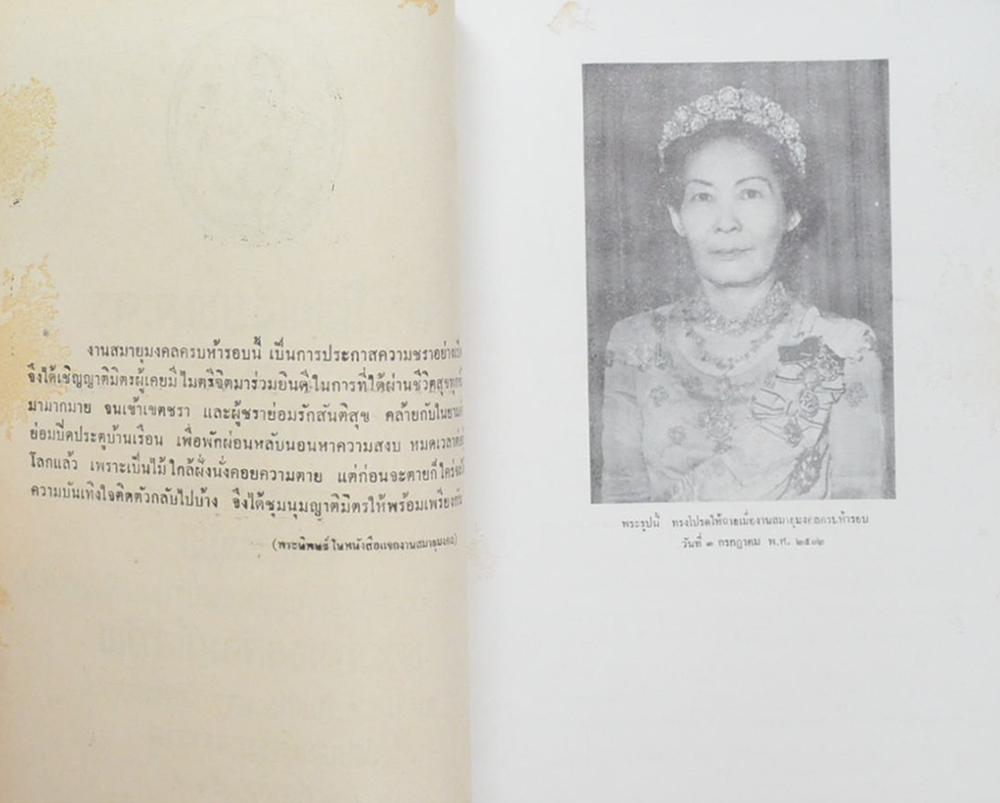 งานสมายุมงคลครบห้ารอบนี้ เป็นการประกาศความชราอย่าง
จึงได้เชิญญาติมิตรผู้เคยมีไมตรีจิตมาร่วมยินดีในการที่ได้ผ่านชีวิตสุข
มามากมาย จนเข้าเขตชรา และผู้ชราย่อมรักสันติสุข คล้ายกับใน
ย่อมปิดประตูบ้านเรือน เพื่อพักผ่อนหลับนอนหาความสงบ หมดเวลา
โลกแล้ว เพราะเป็นไม้ใกล้ฝั่งนั่งคอยความตาย แต่ก่อนจะตายก็ใคร่
ความบันเทิงใจติดตัวกลับไปบ้าง จึงได้ชุมนุมญาติมิตรให้พร้อมเพรียง
(พระนิพนธ์ในหนังสือแจกงานสมายุมงคล)
พระรูปนี้ ทรงโปรดให้ถ่ายเมื่องานสมายุมงคลครบห้ารอบ
วันที่ ๓ กรกฎาคม พ.ศ.